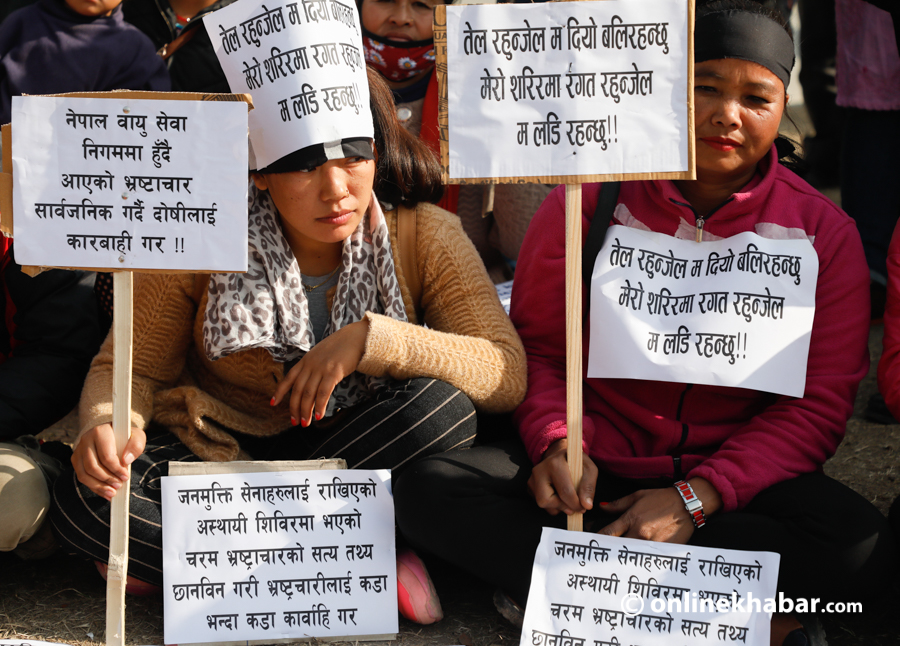 तेल रहुन्जेल म दियो बलिरहन्छु
मेरो शरिरमा रगत रहुन्जेल
म लडि रहन्छु!!
तेल रहुन्जेल म दियो बलिरहन्छु
मेरो शरिरमा रगत रहुन्जेल
म लडि रहन्छु!!
नेपाल वायु सेवा
निगममा हुँदै
आएको भ्रष्टाचार
सार्वजनिक गर्दै दोषीलाई
कारबाही गर !!
तेल रहुन्जेल म दियो बलिरहन्छु
मेरो शरिरमा रगत रहुन्जेल
म लडि रहन्छु!!
जनमुक्ति सेनाहरुलाई राखिएको
अस्थायी शिविरमा भएको
चरम भ्रष्टाचारको सत्य तथ्य
छानविन गरी भ्रष्टचारीलाई कडा
भन्दा कडा कार्वाहि गर
जनमुक्ति सेनाहरुलाई राखिएको
अस्थायी शिविरमा भएको
चरम भ्रष्टाचारको सत्य तथ्य
छानविन गरी भ्रष्टचारीलाई कडा
© onlinekhabar.com